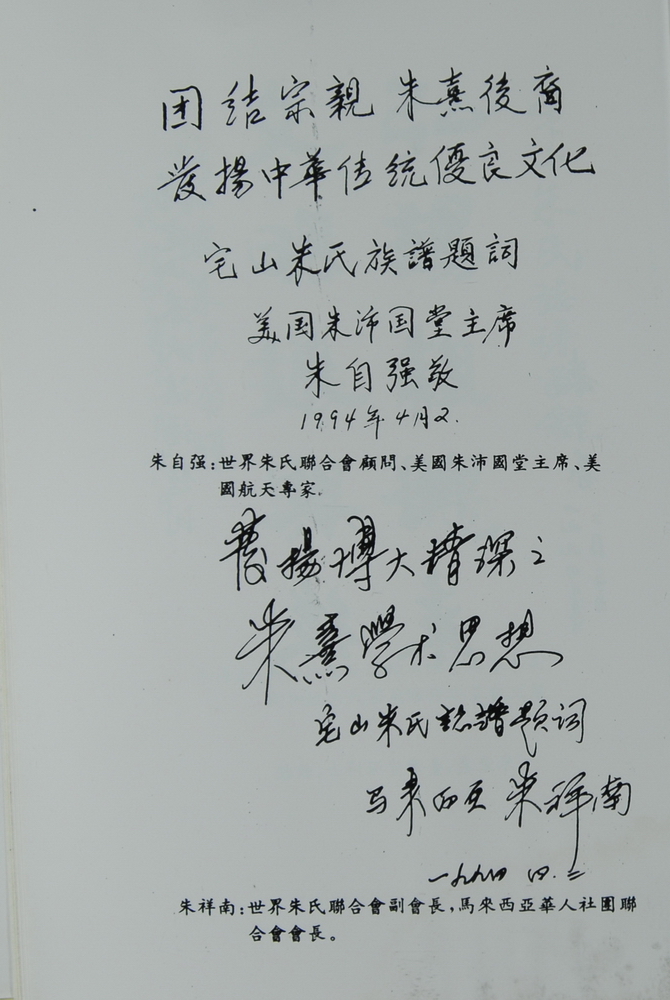 团结宗親 朱熹後裔
發揚中華传统優良文化
宅山朱氏族譜題詞
美国朱沛国堂主席
朱自强敬
1994年4月2.
朱自强:世界朱氏聯合會顧問、美國朱沛國堂主席、美
國航天專家。
發揚博大精深之
朱熹學术思想
宅山朱氏譜題词
马来西亚 朱祥南
一九九四 四.二
朱祥南:世界朱氏聯合會副會長,馬來西亞華人社團聯
合會會長。